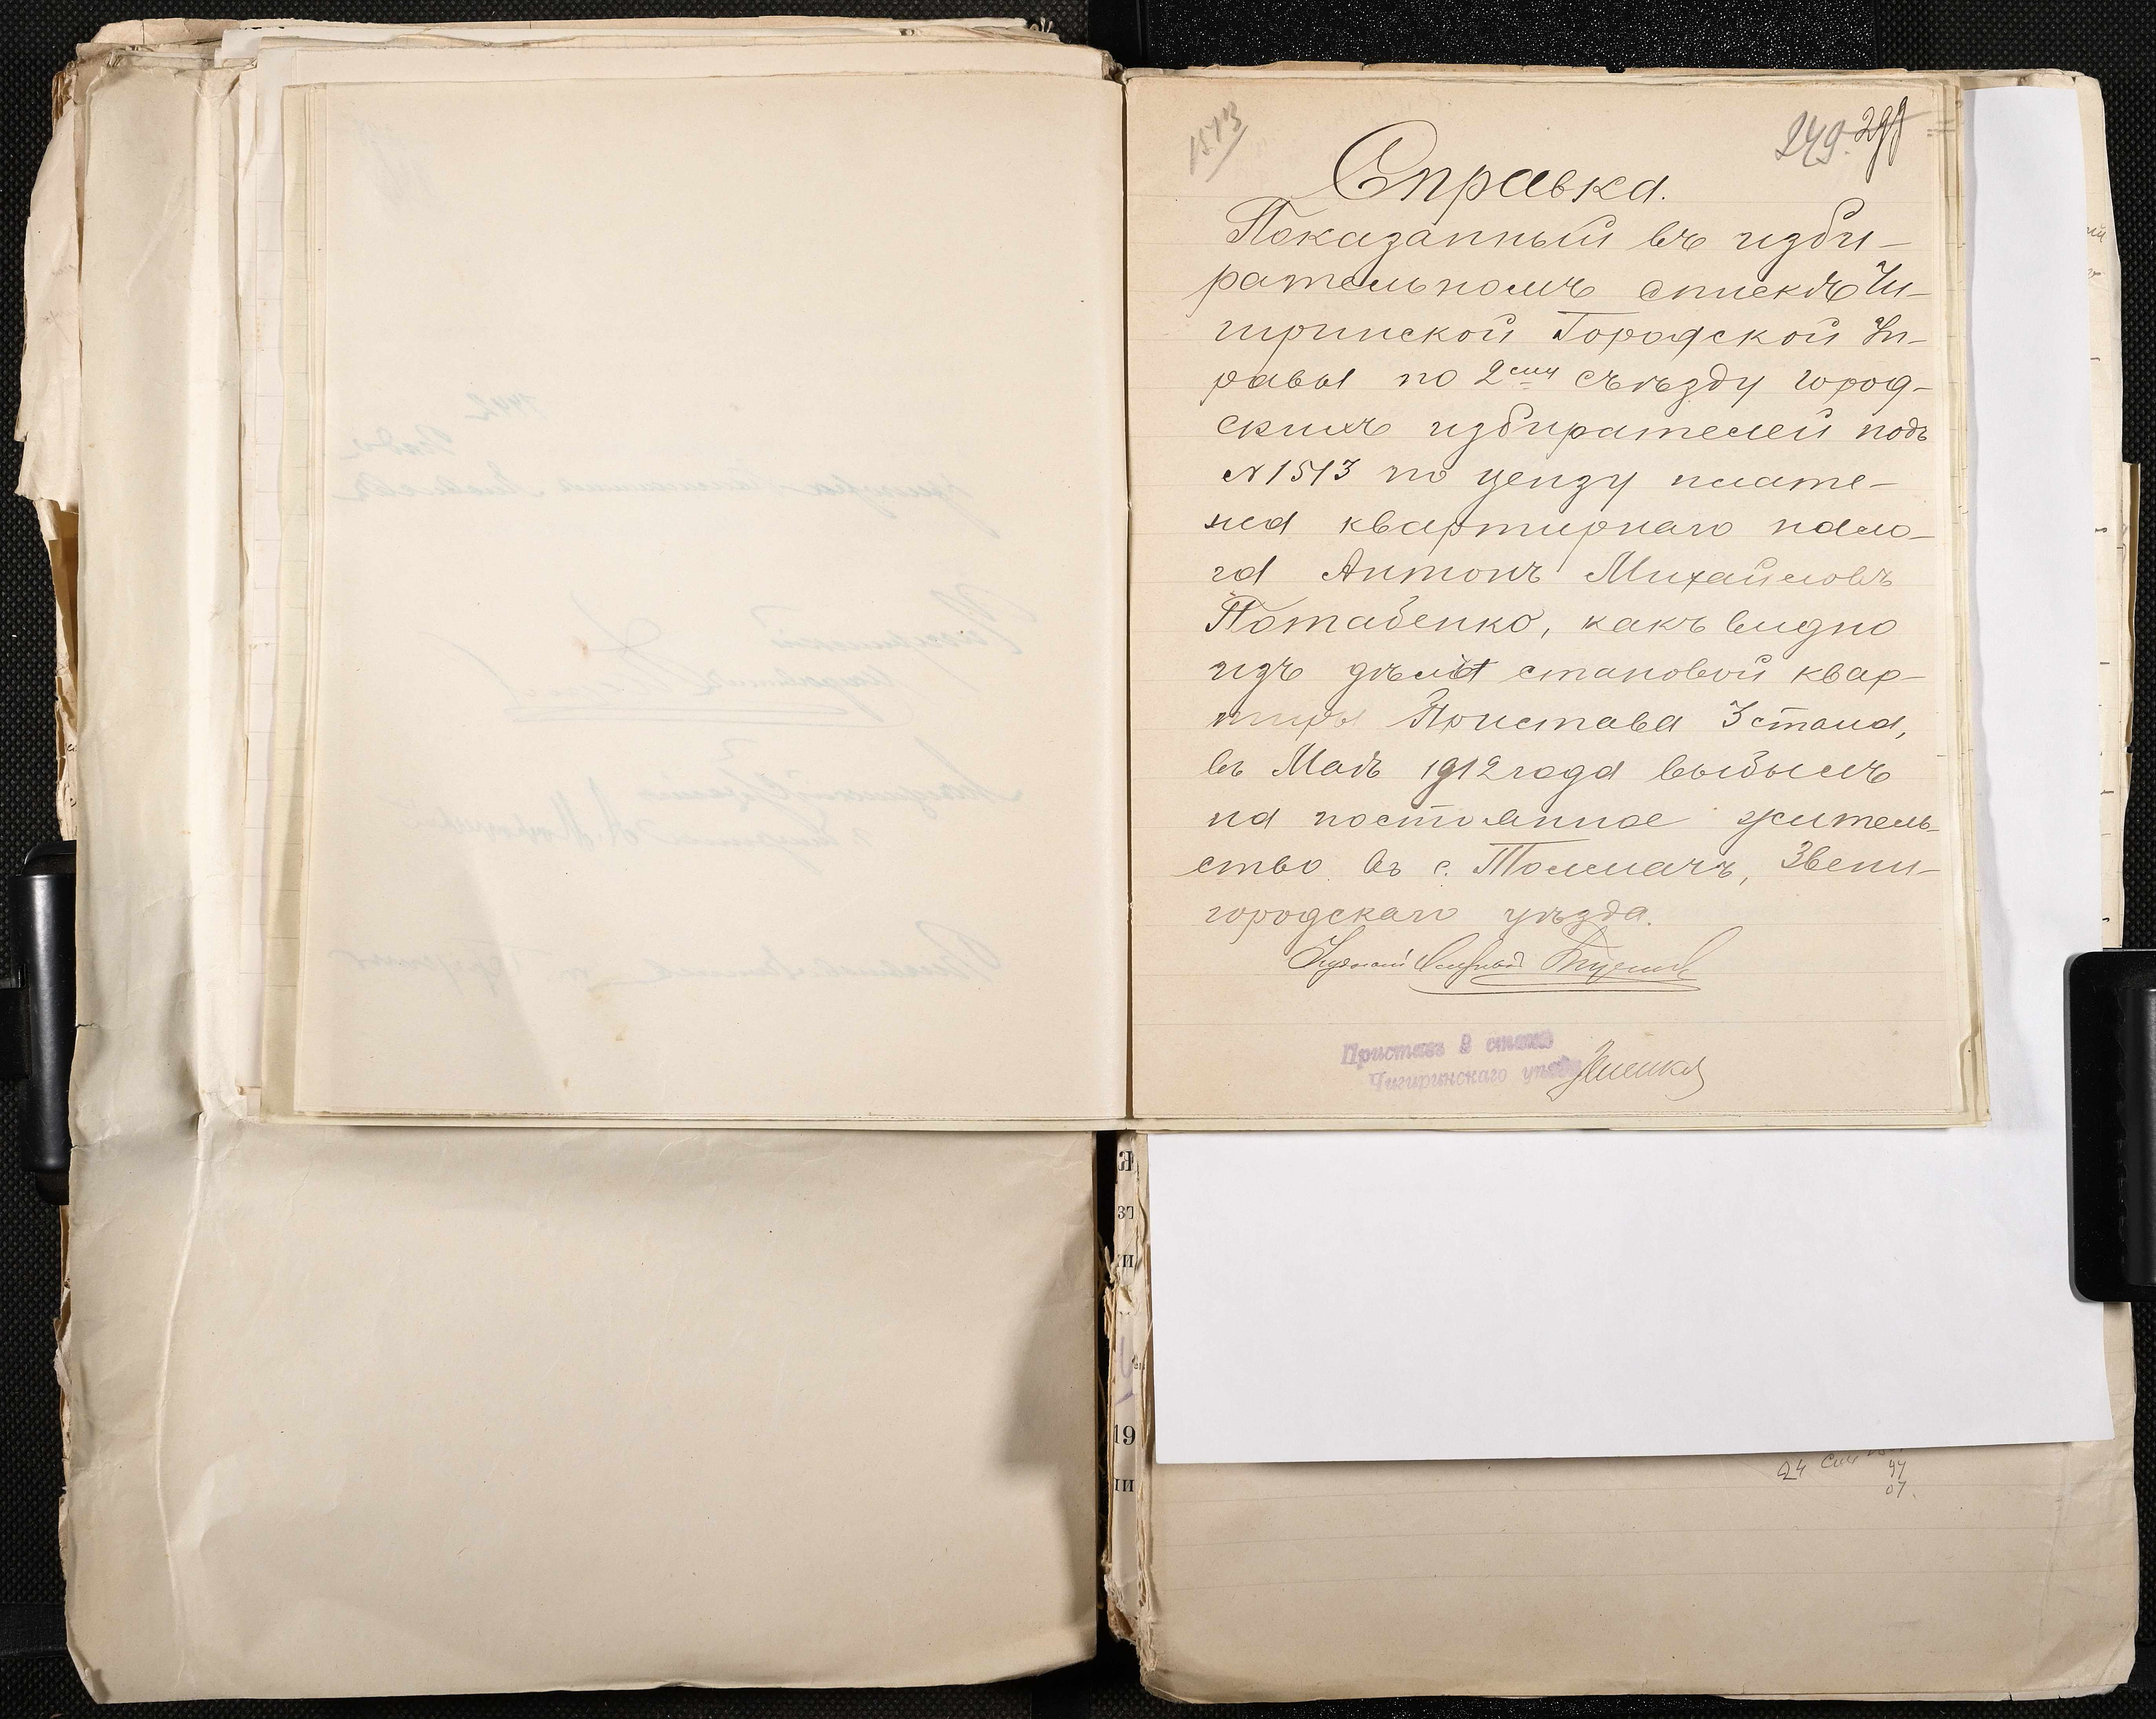 1513
249.
Справка.
Показанный въ изби-
рательномъ списке Чи-
гиринской Городской Уп-
равы по 2ому съѣзду город-
скихъ избирателей подъ
№ 1513 по цензу плате-
ля квартирнаго нало-
га Антонъ Михайловъ
Потабенко, какъ видно
изъ дѣлъ становой квар-
тиры Пристава 3 стана,
въ Маѣ 1912 года выбылъ
на постоянное житель-
ство въ с. Толмачъ, Звени-
городскаго уѣзда.
Приставъ 3 стана
Чигиринскаго уѣзда
19
24